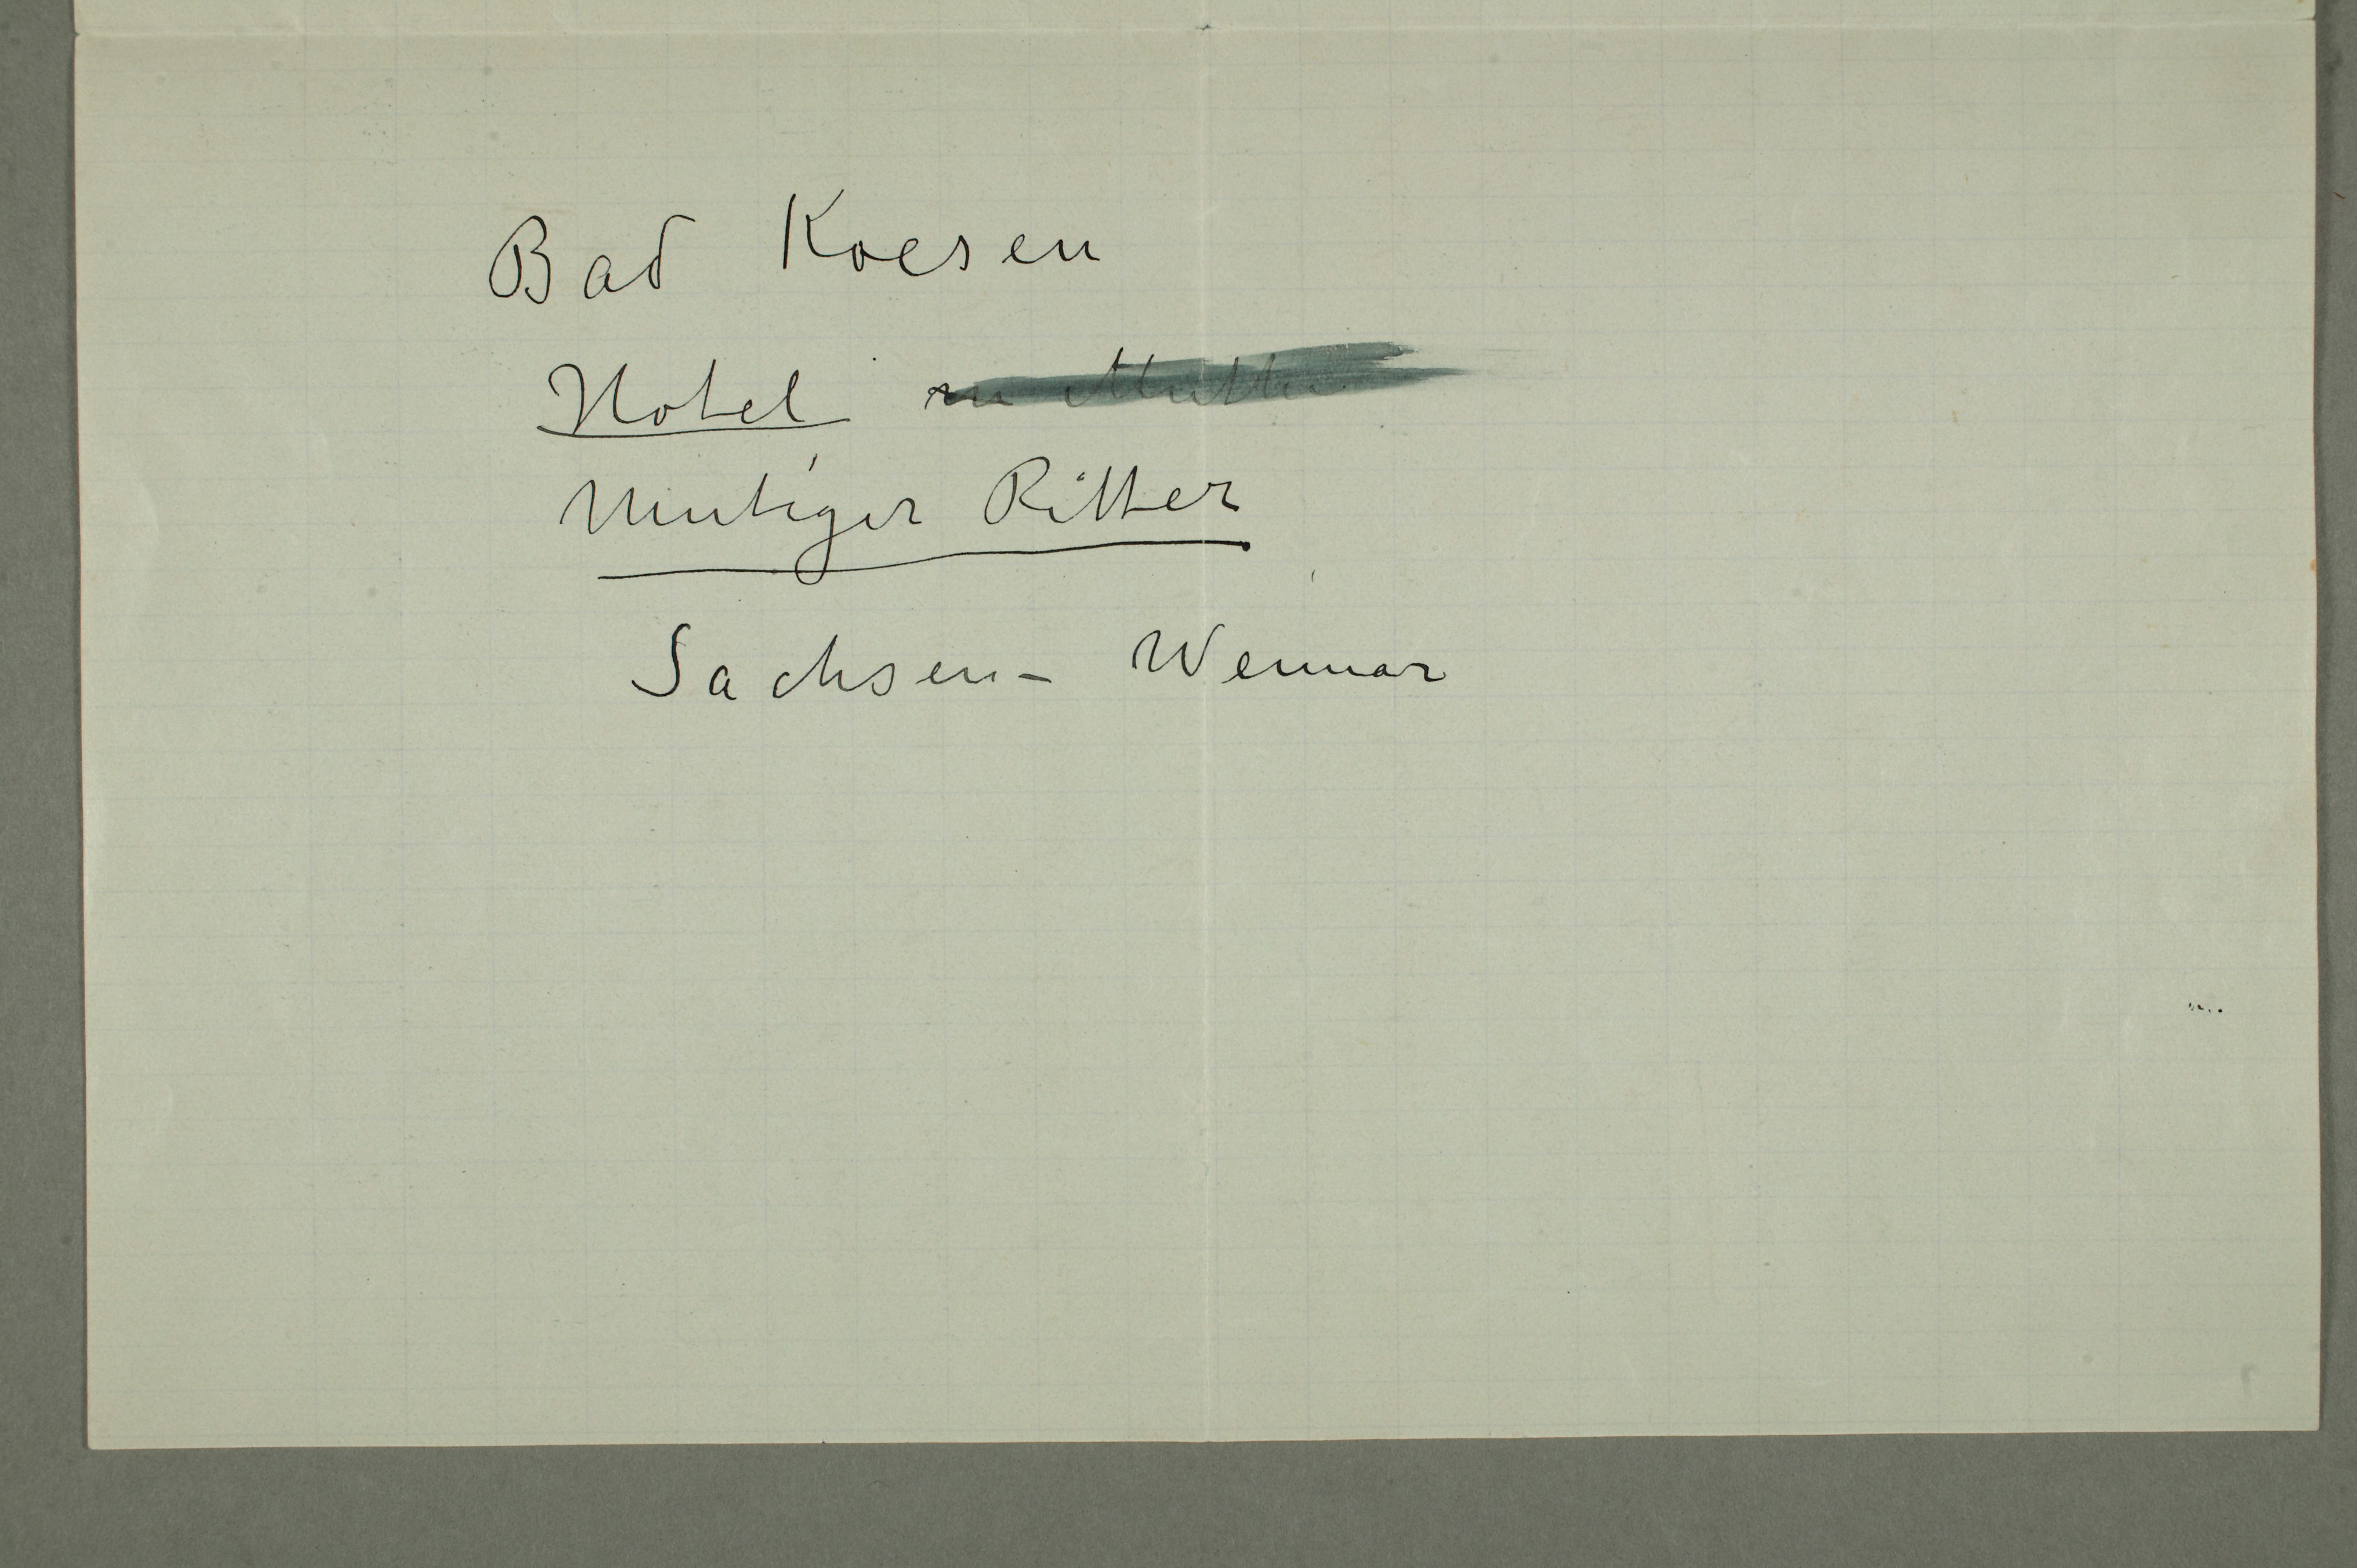 Bad Koesen
Hotel
Mutiger Ritter
Sachsen- Weimar